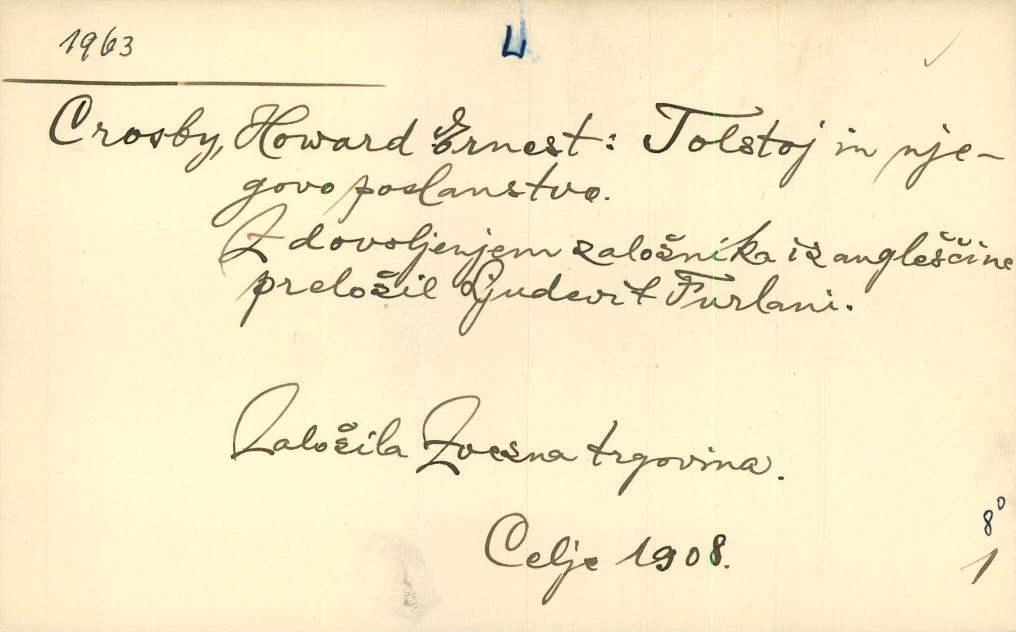 1963
U
Crosby, Howard Ernest: Tolstoj in nje-
govo poslanstvo.
Z dovoljenjem založnika iz angleščine
preložil Ljudevit Furlani.
Založila Zvezna trgovina.
Celje 1908.
8°
1